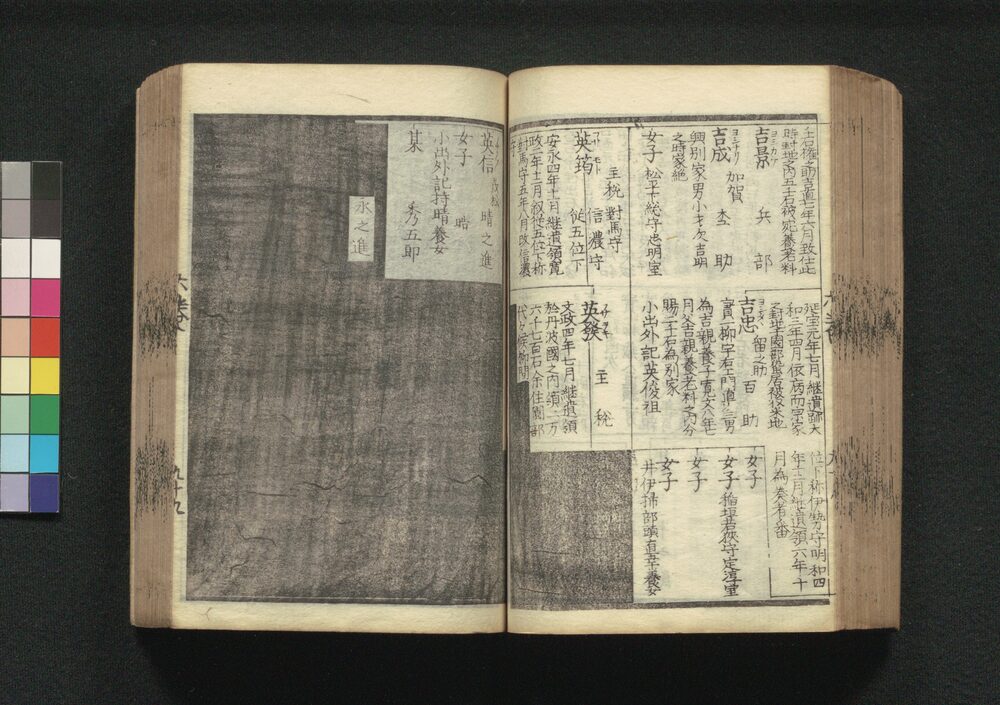 壬石権之助吉直七年六月致仕此
時封地之内五十石被宛養老料
吉景 兵部
ヨシカゲ
吉成 加賀 杢助
ヨシナリ
興別家男小才次吉明
之時家絶
女子 松平下総守忠明室
主税 對馬守
英筠 信濃守 従五位下
安永四年十一月継遺領寛
政二年十二月叙従五位下称
對馬守五年八月改信濃
守
延宝元年七月継遺跡大
和三年四月依病而宗家
吉忠 留之助 百助
ヨシタダ
為吉親養子寛文八年七
月父吉親養老料之内分
賜二千石為別家
小出外記英俊祖
英發 主税
文政四年七月継遺領
於丹波國之内領二万
六千七百石余住園部
代々候柳間
位下称伊勢守明和四
年十二月継遺領六年十
月為奏者番
女子
女子 稲垣若狭守定淳室
女子
女子
井伊掃部頭直幸養女
英信 晴之進
女子 晧
小出外記持晴養女
某 秀五郎
永之進
六巻
九十九